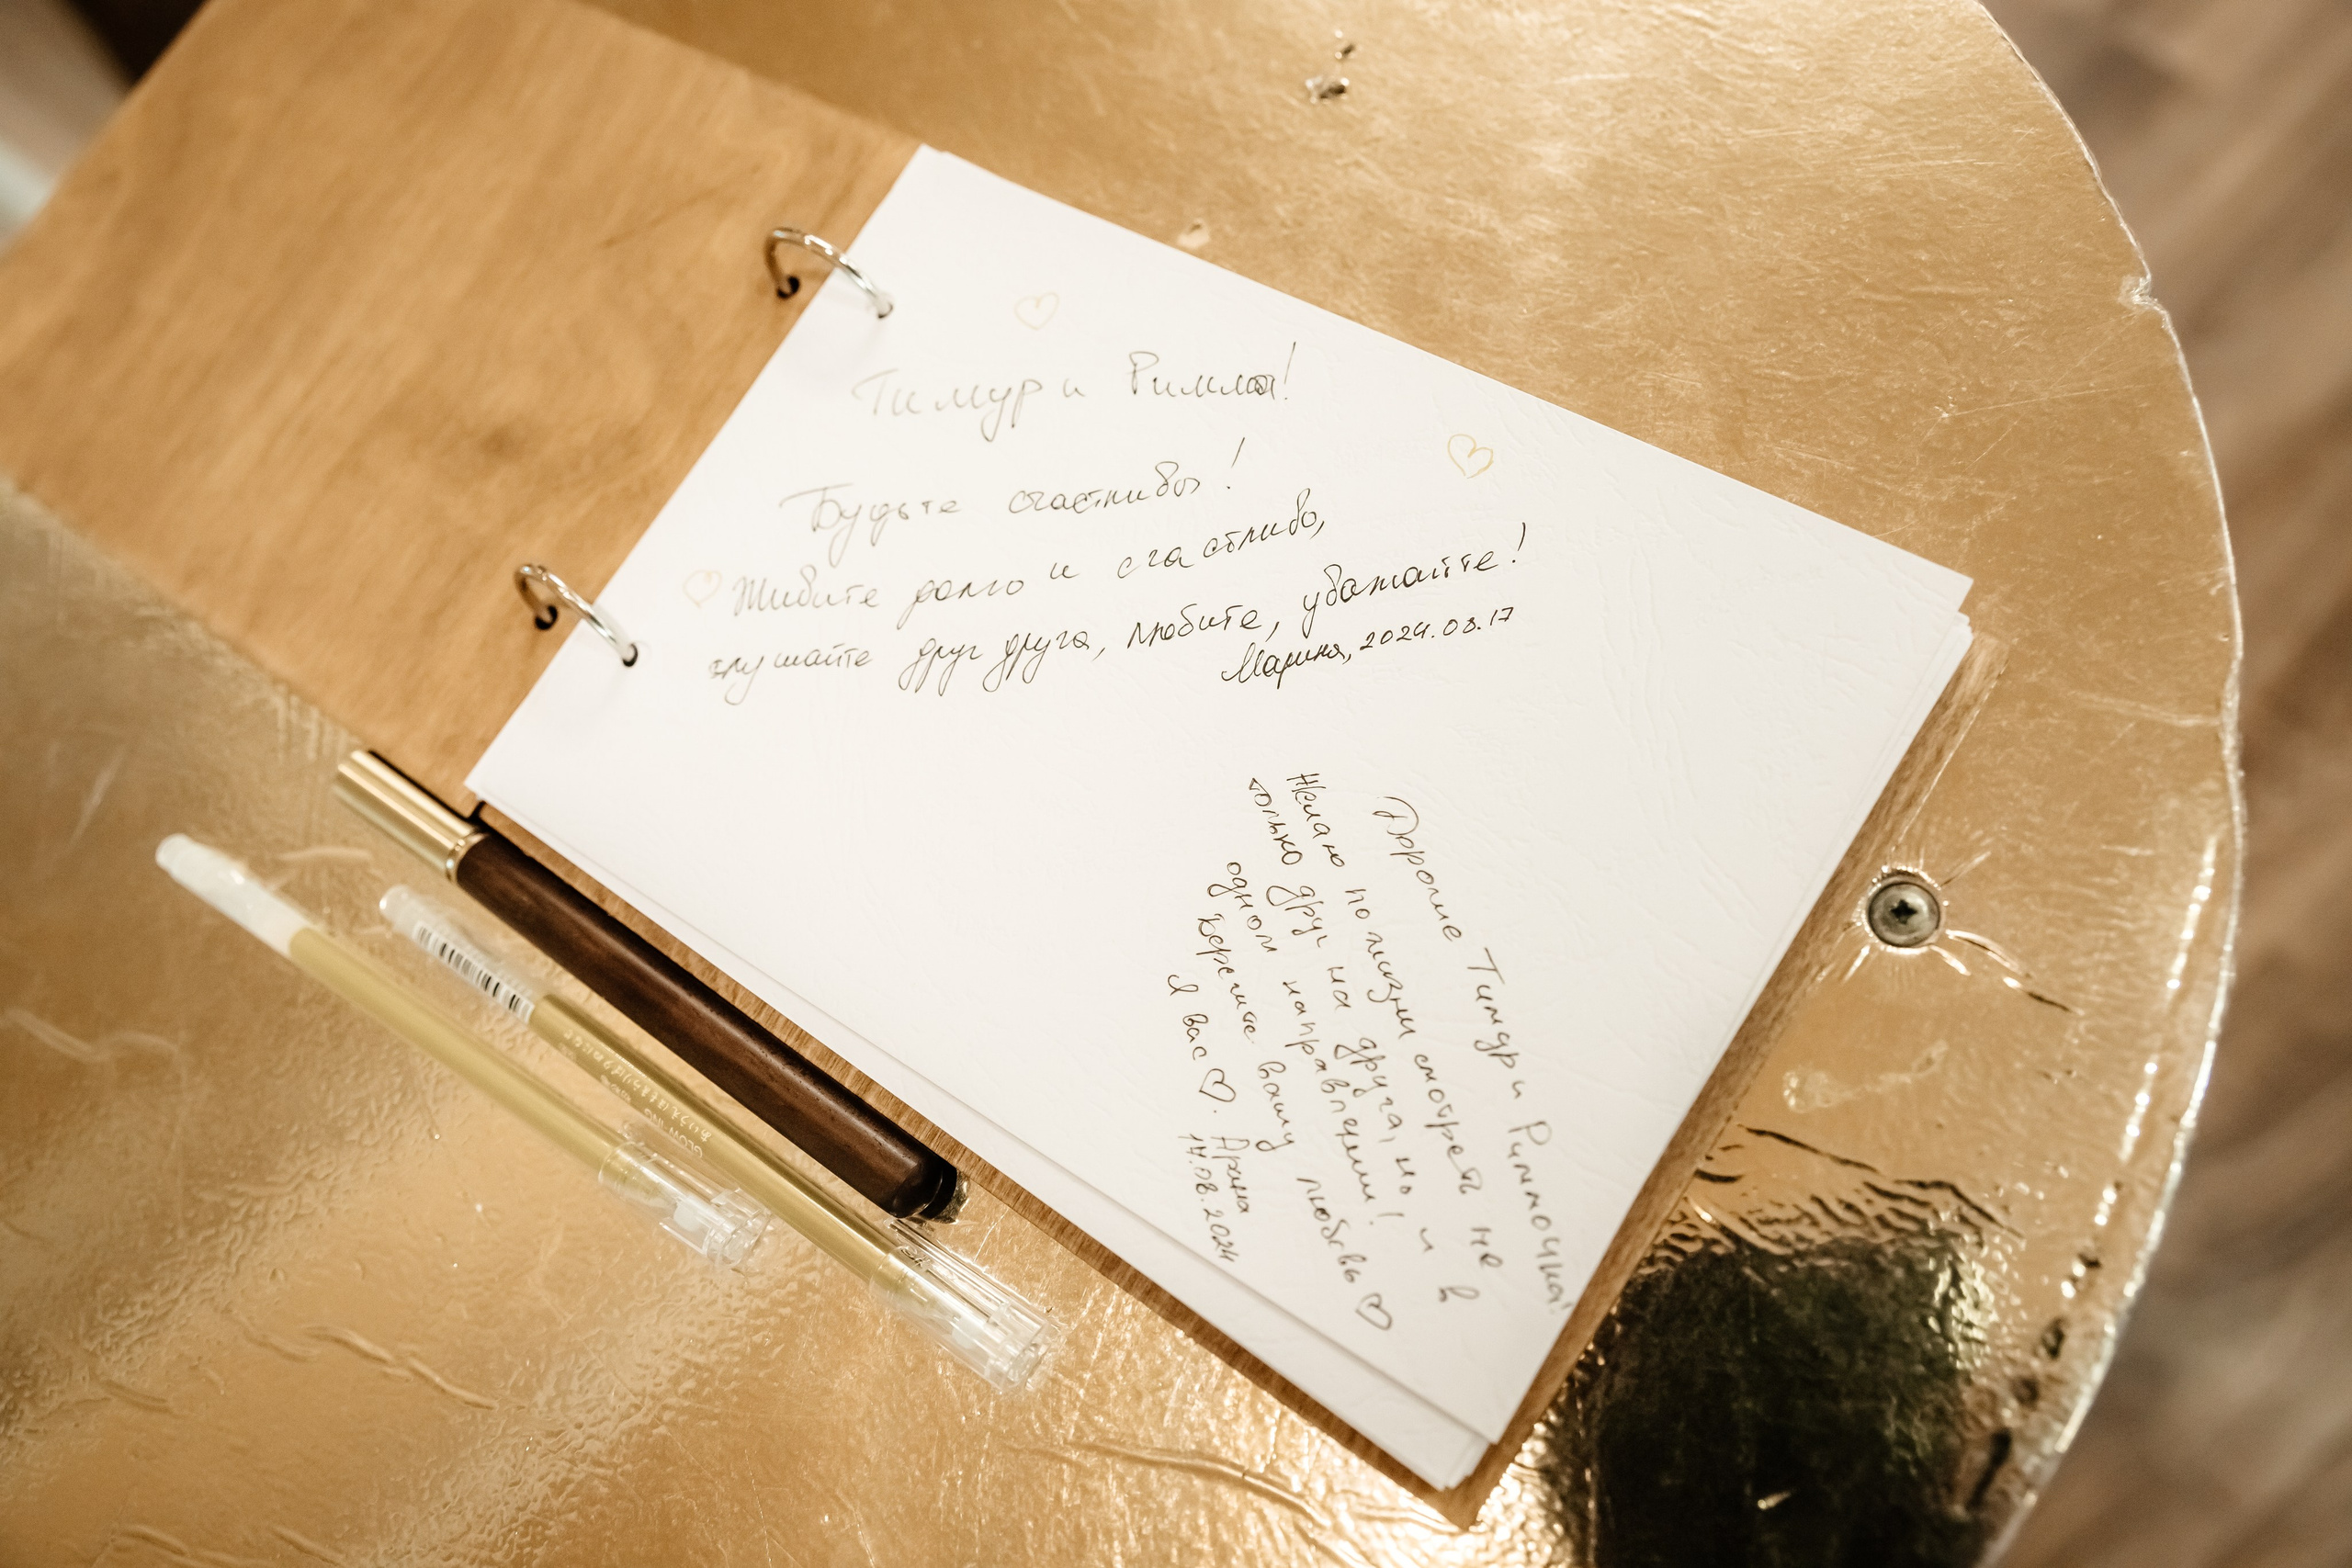 Тимур и Римма!
Будьте счастливы!
Живите долго и счастливо,
слушайте друг друга, любите, уважайте!
Марина, 2024.08.17
Дорогие Тимур и Риммочка!
Желаю по жизни смотреть не
только друг на друга, но и в
одном направлении!
Берегите вашу любовь ♡
Я вас ♡. Арина
17.08.2024